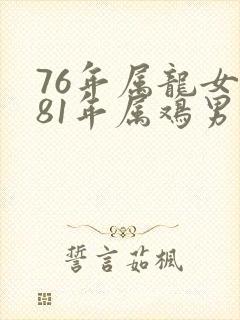 76年属龍女
81年属鸡男
誓言茹楓